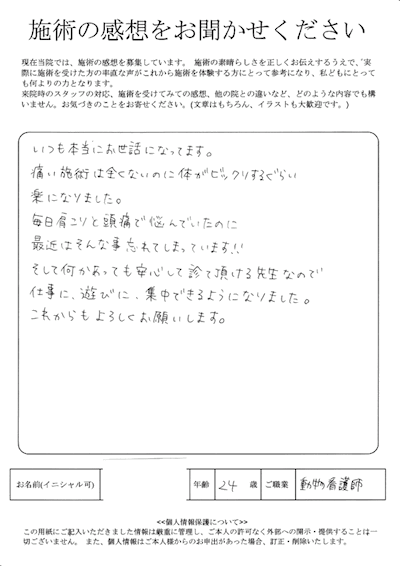 施術の感想をお聞かせください
現在当院では、施術の感想を募集しています。 施術の素晴らしさを正しくお伝えするうえで、実
際に施術を受けた方の率直な声がこれから施術を体験する方にとって参考になり、私どもにとって
も何よりの力となります。
来院時のスタッフの対応、施術を受けてみての感想、他の院との違いなど、どのような内容でも構
いません。お気づきのことをお寄せください。(文章はもちろん、イラストも大歓迎です。)
いつも本当にお世話になってます。
痛い施術は全くないのに体がビックリするぐらい
楽になりました。
毎日肩こりと頭痛で悩んでいたのに
最近はそんな事忘れてしまっています!!
そして何かあっても安心して診て頂ける先生なので
仕事に、遊びに、集中できるようになりました。
これからもよろしくお願いします。
お名前(イニシャル可) 年齢 24 歳 ご職業 動物看護師
<<個人情報保護について>>
この用紙にご記入いただきました情報は厳重に管理し、ご本人の許可なく外部への開示・提供することは一
切ございません。 また、個人情報はご本人様からのお申出があった場合、訂正・削除いたします。